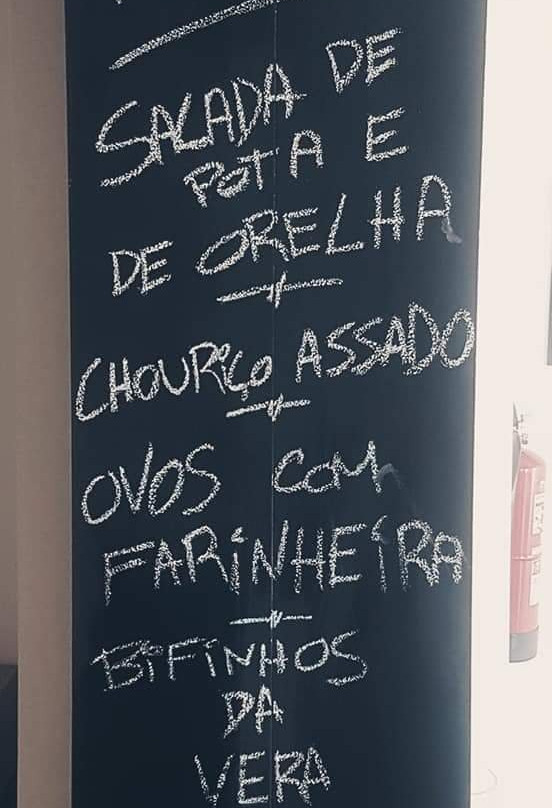 SALADA DE
POTA E
DE ORELHA
CHOURIÇO ASSADO
OVOS COM
FARINHEIRA
BIFINHOS
DA
VERA